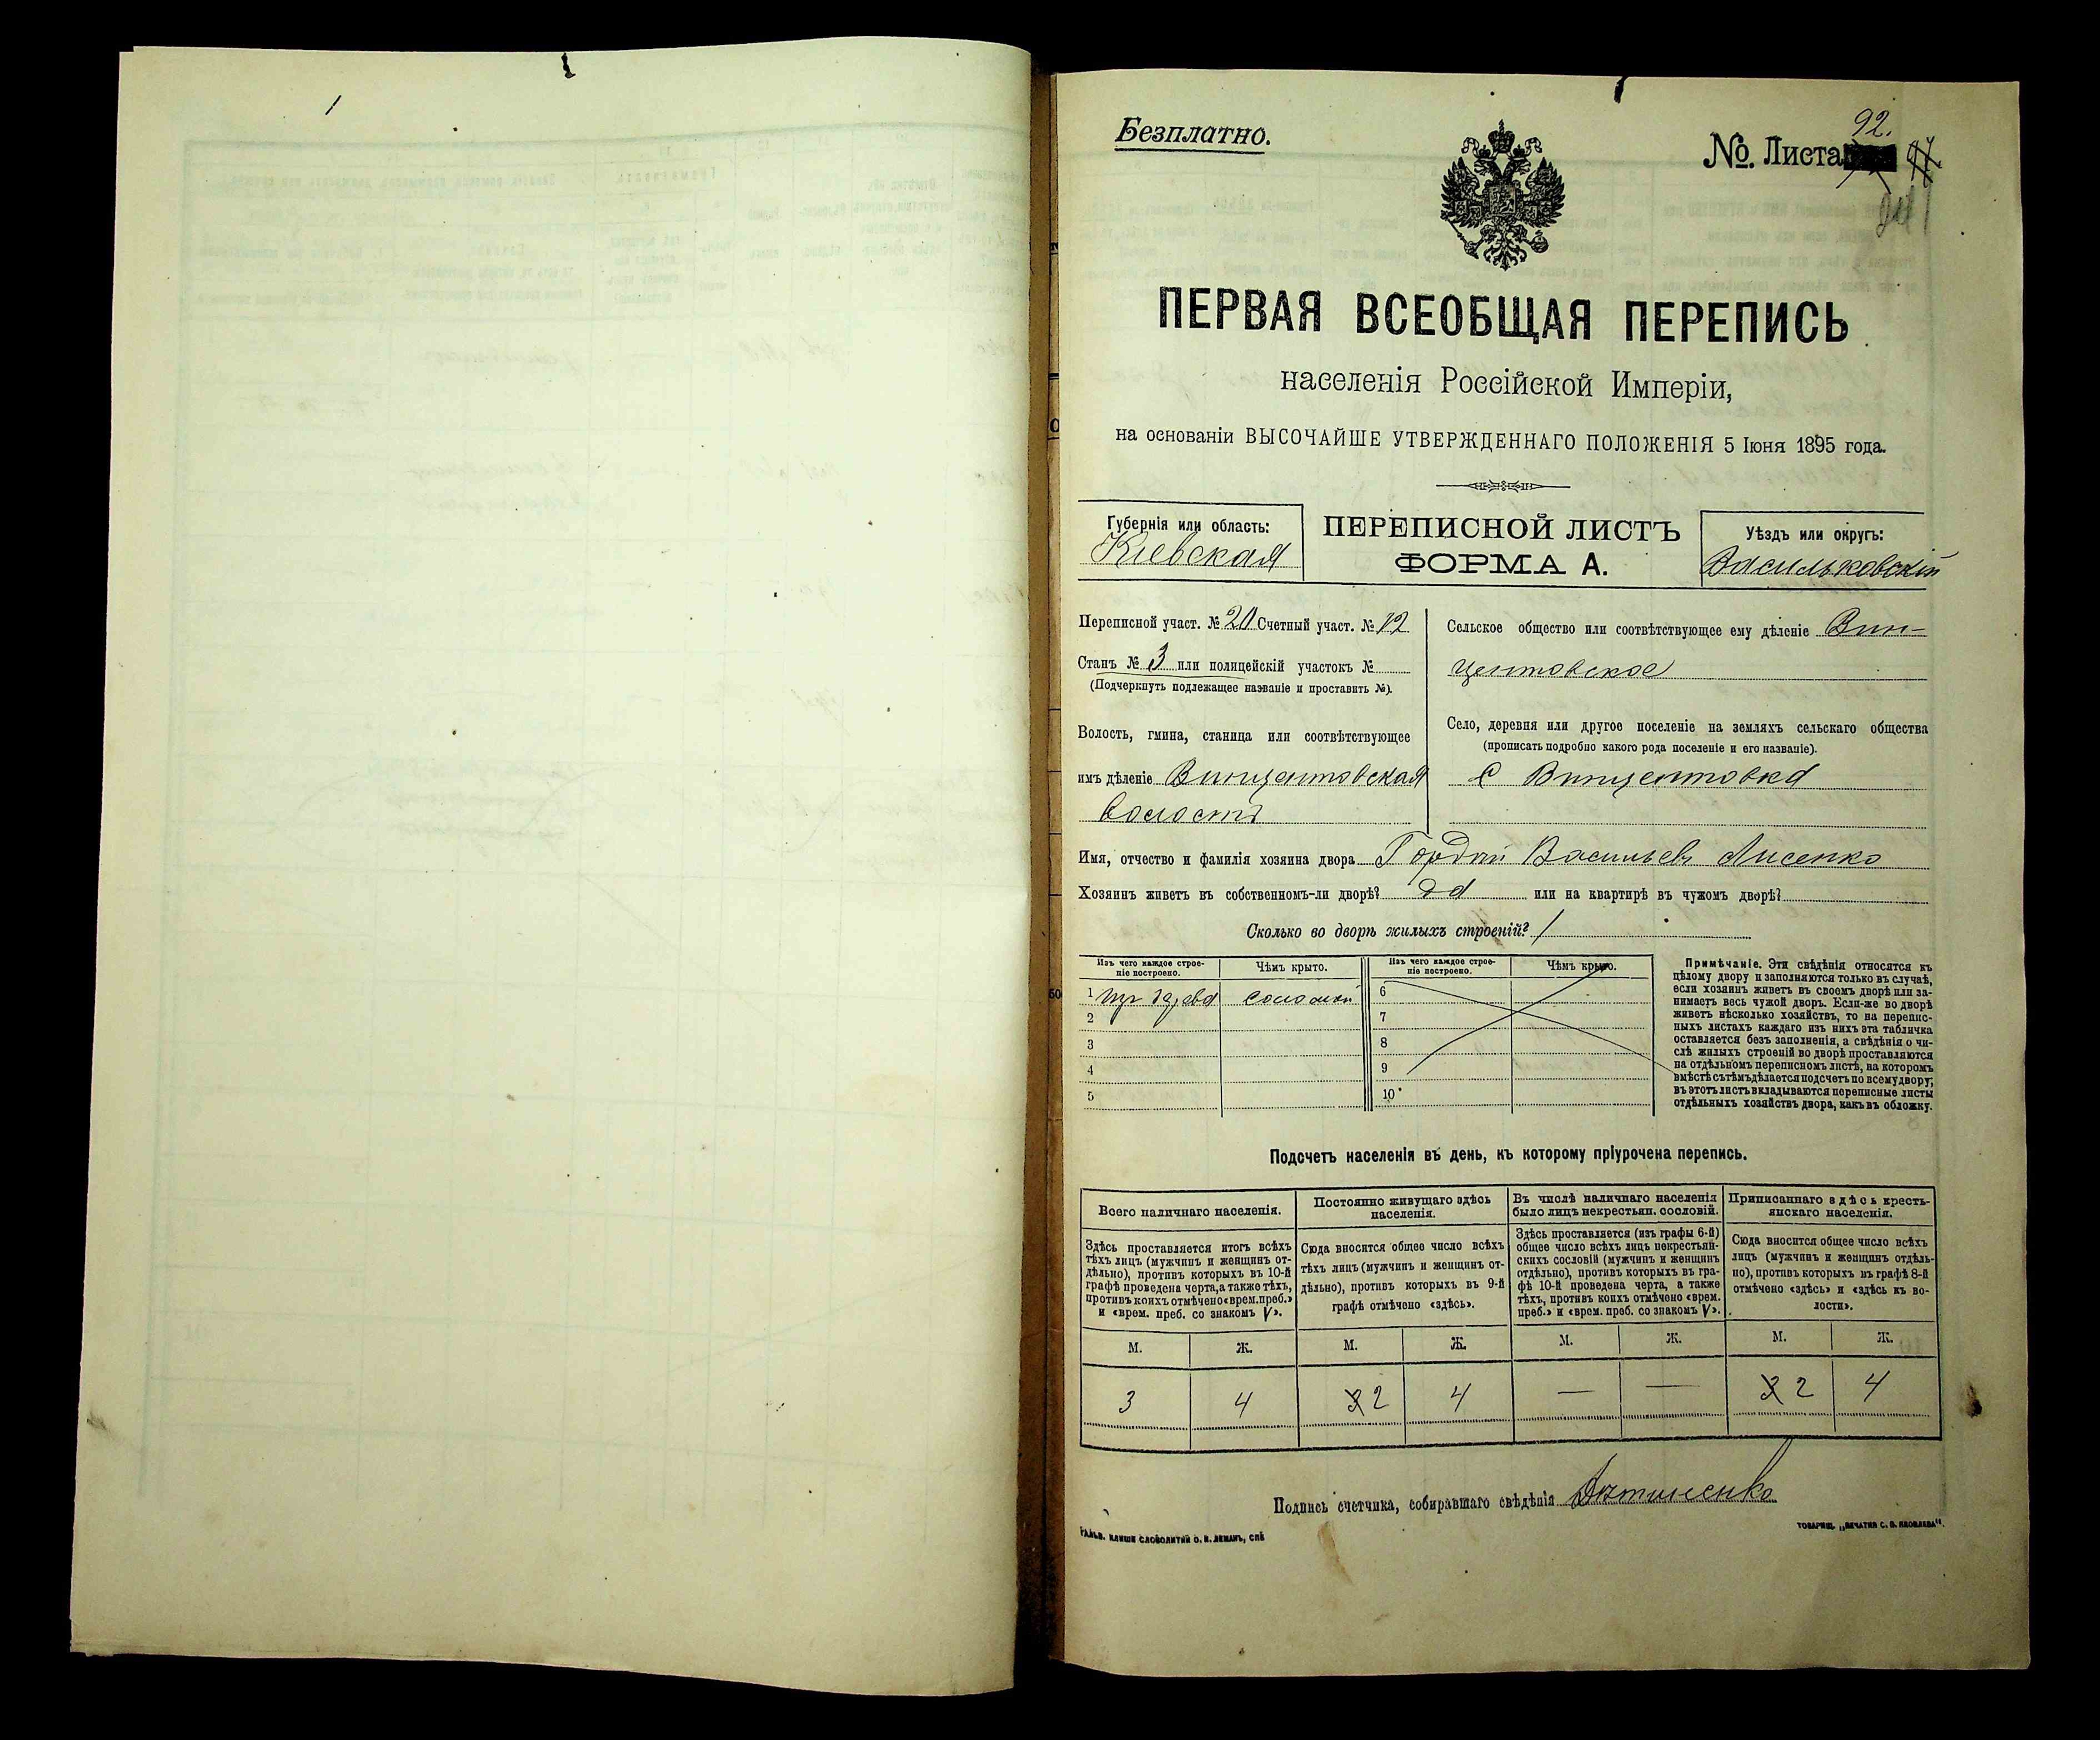 Безплатно.
92.
№ Листа
ПЕРВАЯ ВСЕОБЩАЯ ПЕРЕПИСЬ
населенія Россійской Имперіи,
на основаніи ВЫСОЧАЙШЕ УТВЕРЖДЕННАГО ПОЛОЖЕНІЯ 5 Іюня 1895 года.
Губернія или область:
Кіевская
ПЕРЕПИСНОЙ ЛИСТЪ
ФОРМА А.
Уѣздъ или округъ:
Васильковскій
Переписной участ. № 20 Счетный участ. № 12
Станъ № 3 или полицейскій участокъ №
(Подчеркнуть подлежащее названіе и проставить №).
Волость, гмина, станица или соотвѣтствующее
имъ дѣленіе Винцентовская
волость
Сельское общество или соотвѣтствующее ему дѣленіе Вин-
центовское
Село, деревня или другое поселеніе на земляхъ сельскаго общества
(прописать подробно какого рода поселеніе и его названіе).
С Винцентовка
Имя, отчество и фамилія хозяина двора Гордій Васильевъ Лисенко
Хозяинъ живетъ въ собственномъ-ли дворѣ? да или на квартирѣ въ чужомъ дворѣ?
Сколько во дворѣ жилыхъ строеній? 1
Изъ чего каждое строе-
ніе построено.
Чѣмъ крыто.
1 изъ дерева соломой
2
3
4
5
Изъ чего каждое строе-
ніе построено.
Чѣмъ крыто.
6
7
8
9
10
Примѣчаніе. Эти свѣдѣнія относятся къ
цѣлому двору и заполняются только въ случаѣ,
если хозяинъ живетъ въ своемъ дворѣ или за-
нимаетъ весь чужой дворъ. Если-же во дворѣ
живетъ нѣсколько хозяйствъ, то на перепис-
ныхъ листахъ каждаго изъ нихъ эта табличка
оставляется безъ заполненія, а свѣдѣнія о чи-
слѣ жилыхъ строеній во дворѣ проставляются
на отдѣльномъ переписномъ листѣ, на которомъ
вмѣстѣ съ тѣмъ дѣлается подсчетъ по всему двору;
въ этотъ листъ вкладываются переписные листы
отдѣльныхъ хозяйствъ двора, какъ въ обложку.
Подсчетъ населенія въ день, къ которому пріурочена перепись.
Всего наличнаго населенія.
Здѣсь проставляется итогъ всѣхъ
тѣхъ лицъ (мужчинъ и женщинъ от-
дѣльно), противъ которыхъ въ 10-й
графѣ проведена черта, а также тѣхъ,
противъ коихъ отмѣчено «врем. преб.»
и «врем. преб. со знакомъ V».
М. Ж.
3 4
Постоянно живущаго здѣсь
населенія.
Сюда вносится общее число всѣхъ
тѣхъ лицъ (мужчинъ и женщинъ от-
дѣльно), противъ которыхъ въ 9-й
графѣ отмѣчено «здѣсь».
М. Ж.
3 2 4
Въ числѣ наличнаго населенія
было лицъ некрестьян. сословій.
Здѣсь проставляется (изъ графы 6-й)
общее число всѣхъ лицъ некрестьян-
скихъ сословій (мужчинъ и женщинъ
отдѣльно), противъ которыхъ въ гра-
фѣ 10-й проведена черта, а также
тѣхъ, противъ коихъ отмѣчено «врем.
преб.» и «врем. преб. со знакомъ V».
М. Ж.
— —
Приписаннаго здѣсь кресть-
янскаго населенія.
Сюда вносится общее число всѣхъ
лицъ (мужчинъ и женщинъ отдѣль-
но), противъ которыхъ въ графѣ 8-й
отмѣчено «здѣсь» и «здѣсь въ во-
лости».
М. Ж.
3 2 4
Подпись счетчика, собиравшаго свѣдѣнія
ГАЛЬВ. КЛИШЕ СЛОВОЛИТНИ О. И. ЛЕМАНЪ, СПБ
ТОВАРИЩ. „ПЕЧАТНЯ С. П. ЯКОВЛЕВА".